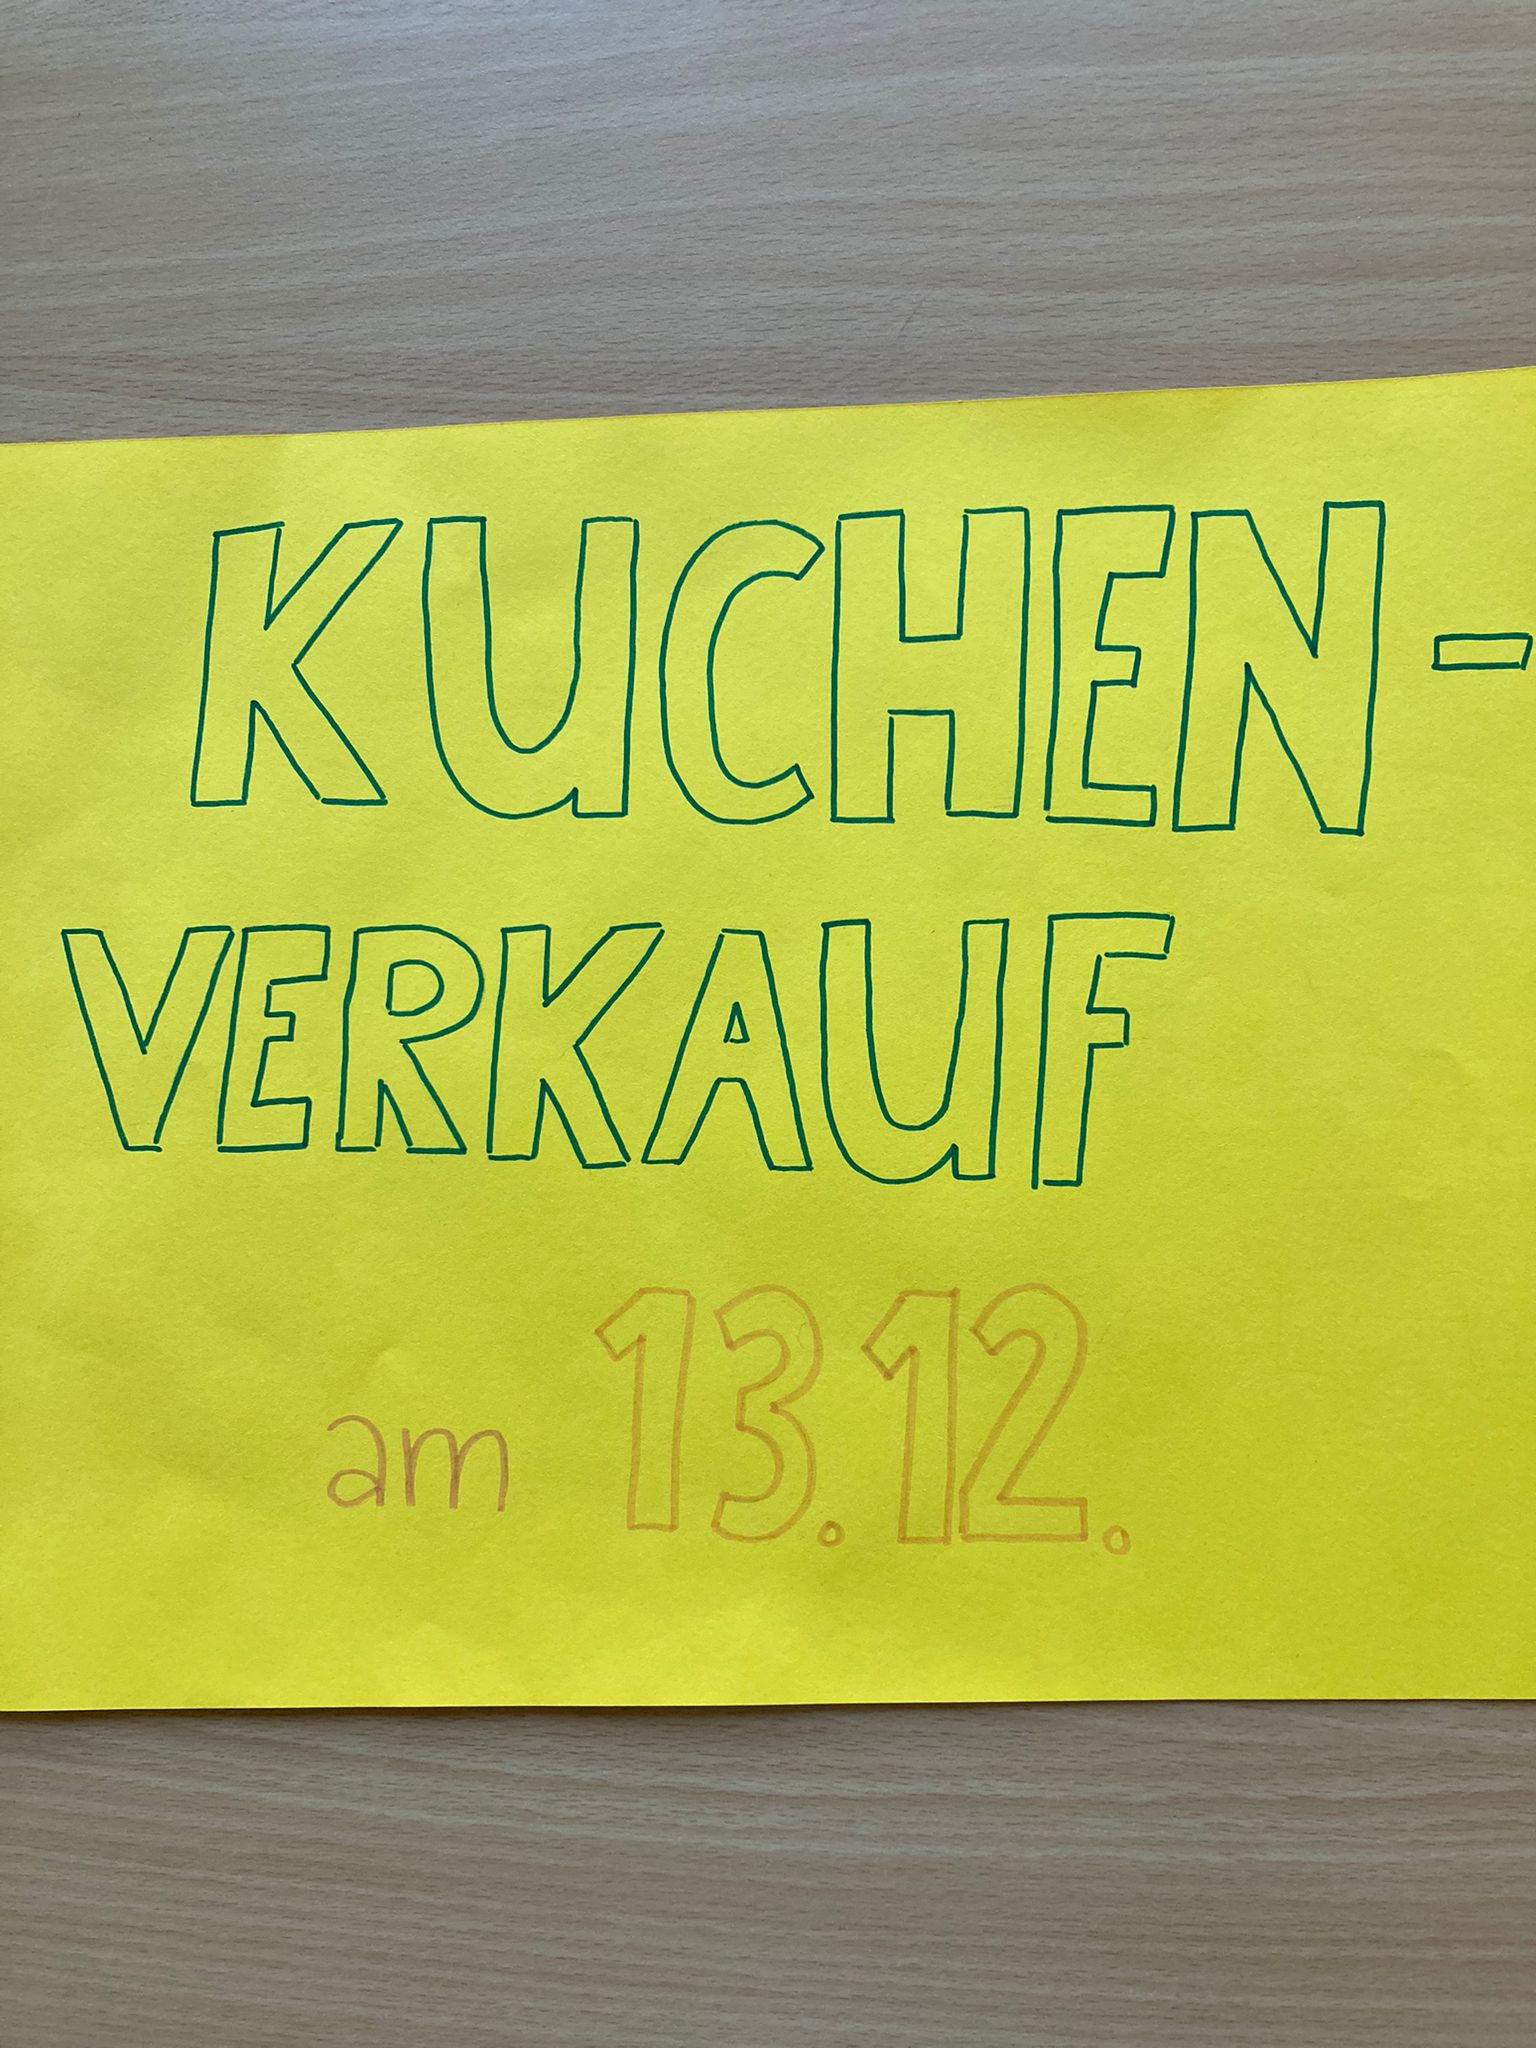 KUCHEN-
VERKAUF
am 13.12.